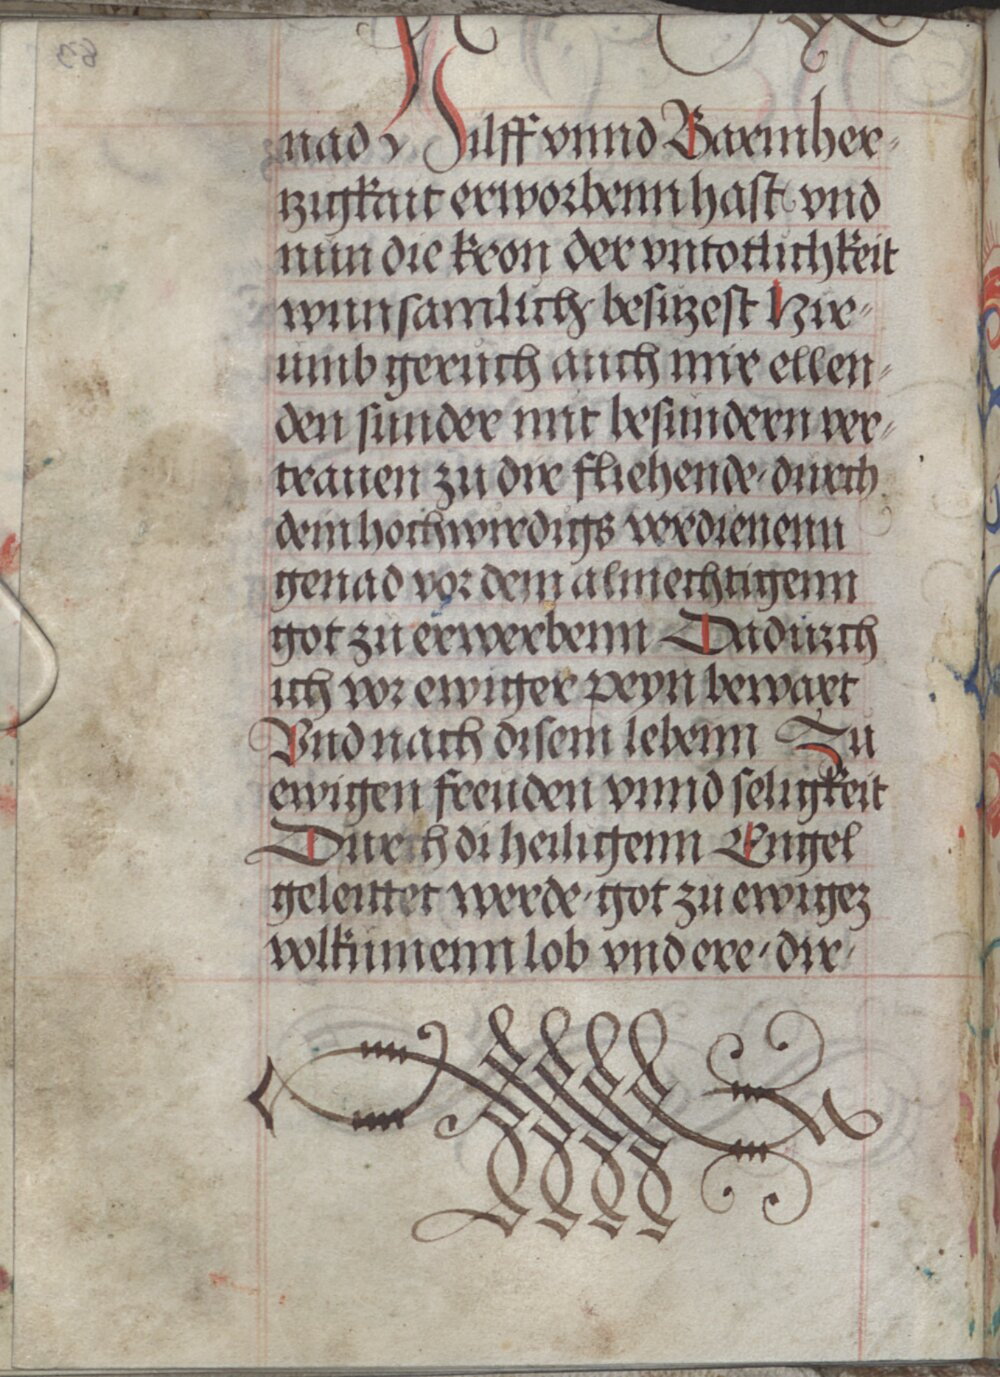 nad Hilff vnnd Barmher-
zigkait erworbenn hast vnd
nun die kron der vntotlichkeit
wunsamlich besitzest Hir-
umb geruch auch mir ellen-
den sunder mit besundern ver-
trauen zu dir fliehende durch
dein hochwirdigs verdienenn
genad vor dem almechtigenn
got zu erwerbenn Dadurch
ich vor ewiger peyn bewart
Vnd nach disem lebenn Zu
ewigen freuden vnnd seligkeit
Durch di heiligenn Engel
geleittet werde got zu ewigez
volkumenn lob vnd ere dir